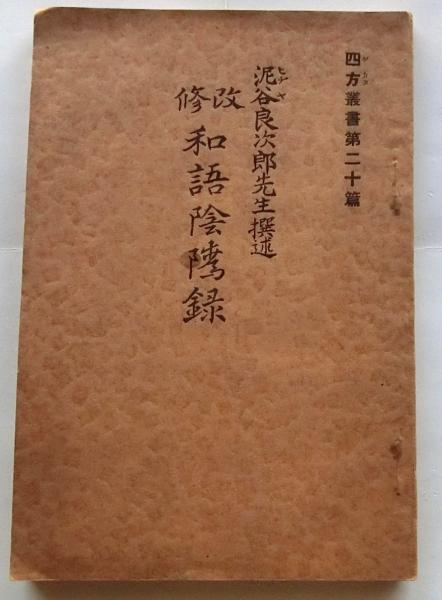 四方叢書第二十篇
泥谷良次郎先生撰述
改修
和語陰隲録